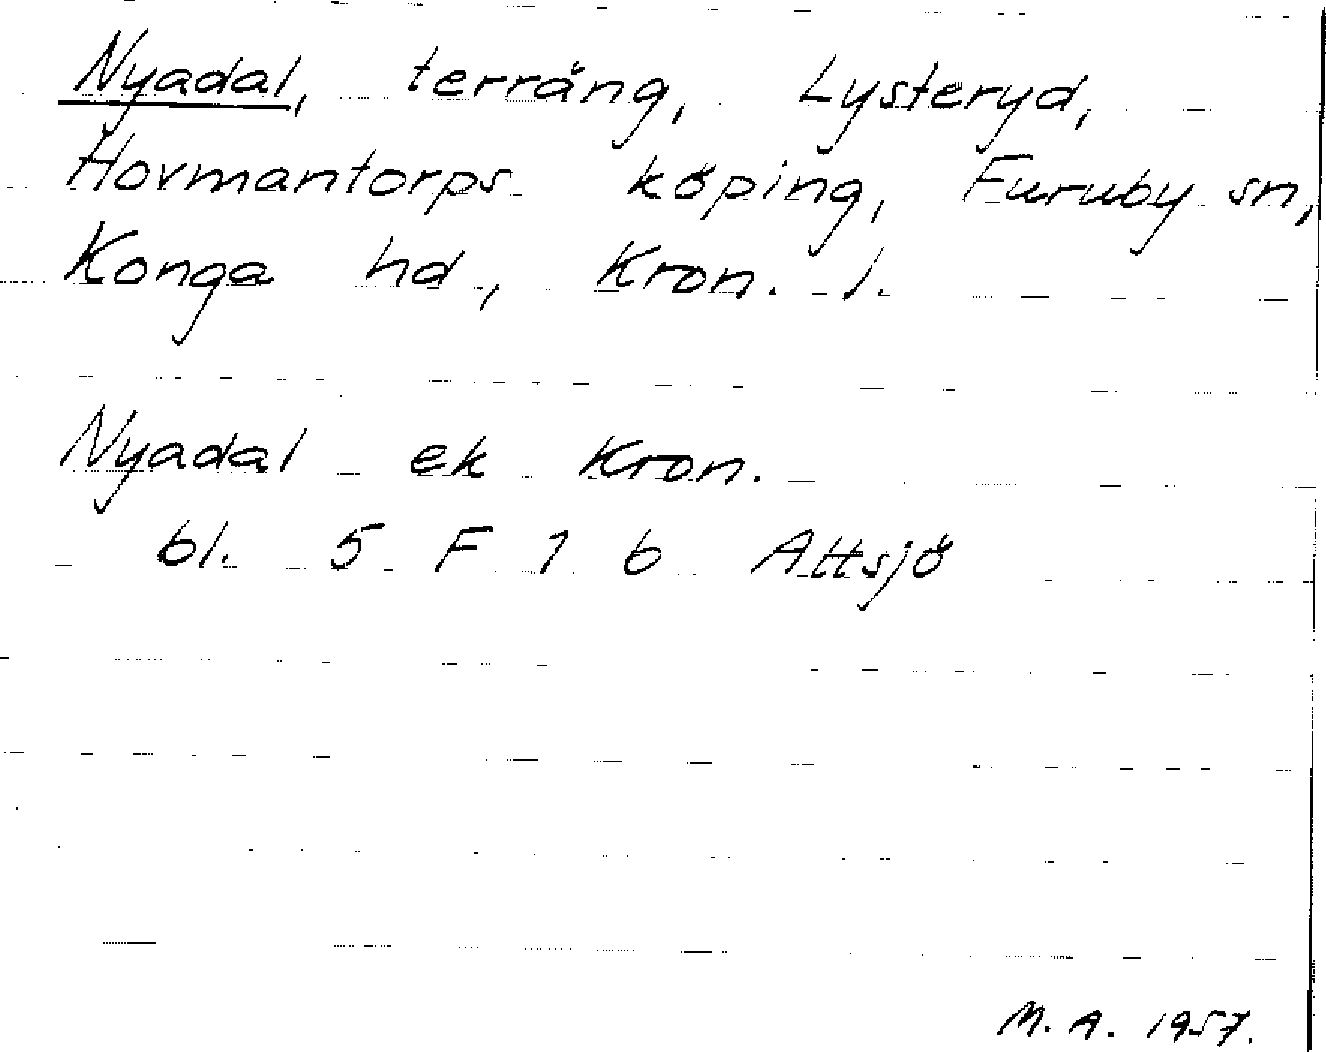 Nyadal, terräng, Lysteryd,
Hovmantorps köping, Furuby sn,
Konga hd, Kron. l.
Nyadal ek Kron.
bl. 5 F 1 b Attsjö
M. A. 1957.